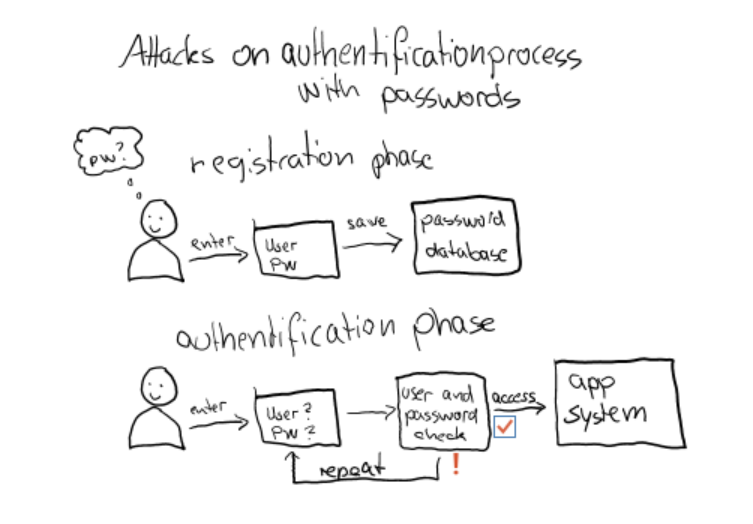 Attacks on authentificationprocess
with passwords
pw?
registration phase
enter
User
PW
save
password
database
authentification phase
enter
User?
PW?
user and
password
check
access
app
system
repeat
!